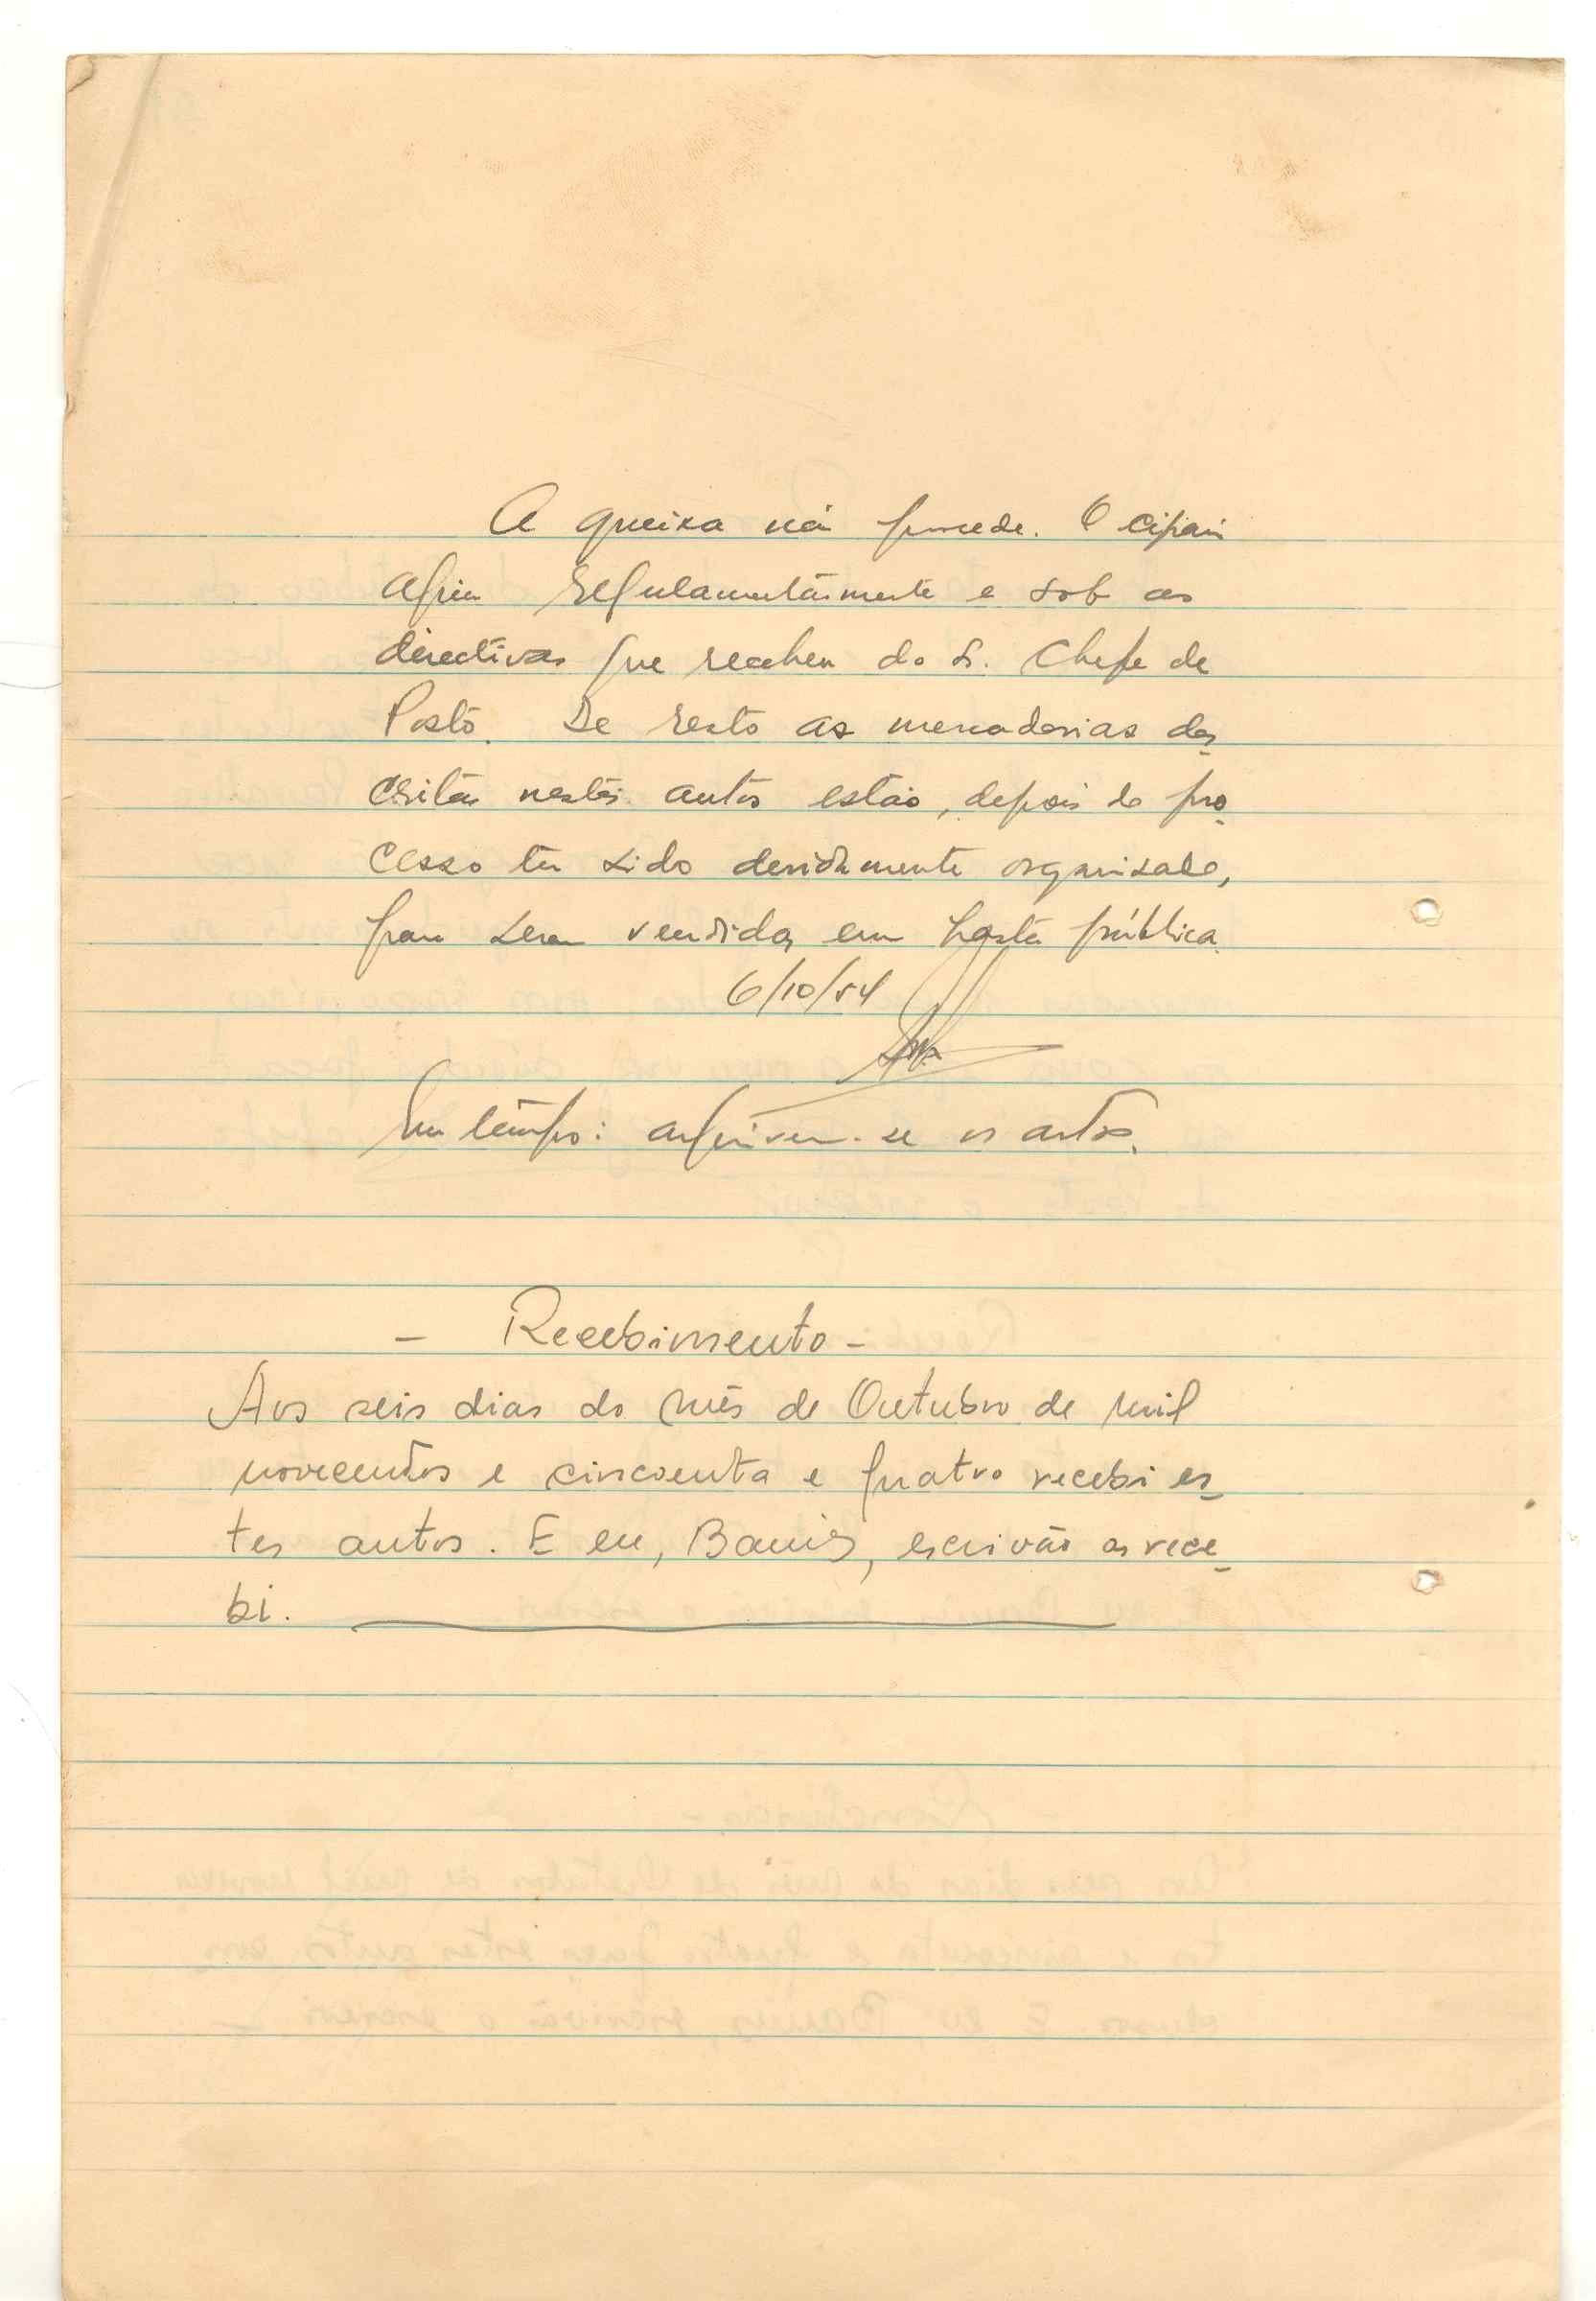 A queixa não procede. O cipaio
agiu regulamentarmente e sob as
directivas que recebeu do Sr. Chefe de
Posto. De resto as mercadorias des-
critas nestes autos estão, depois do pro-
cesso ter sido devidamente organizado,
para serem vendidas em hasta pública.
6/10/54
Em tempo: arquivem-se os autos.
- Recebimento -
Aos seis dias do mês de Outubro de mil
novecentos e cincoenta e quatro recebi es-
tes autos. E eu, escrivão os rece-
bi.